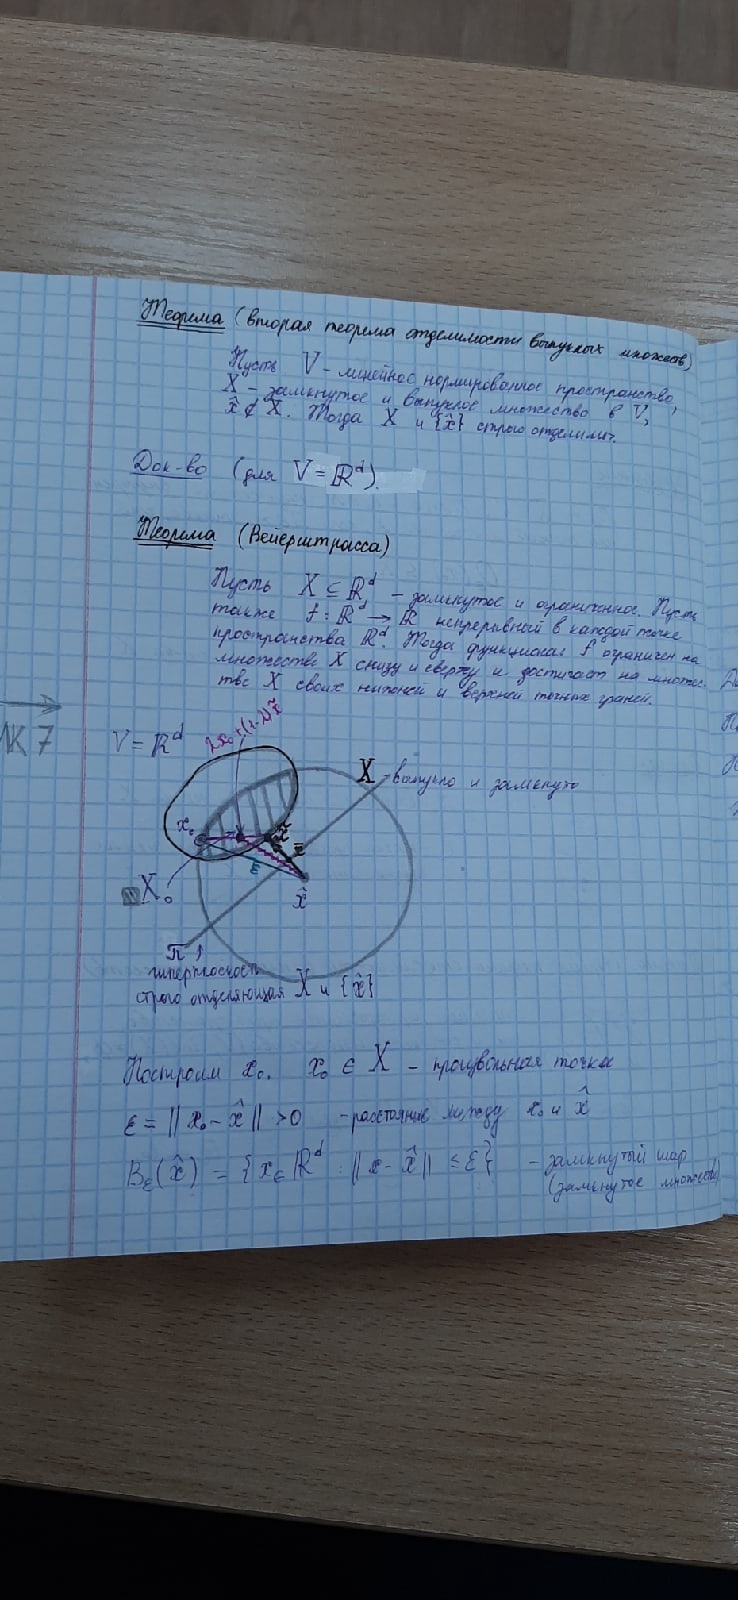 Теорема (вторая теорема отделимости выпуклых множеств)
Пусть V - линейное нормированное пространство,
X - замкнутое и выпуклое множество в V,
x̂ ∉ X. Тогда X и {x̂} строго отделимы.
Док-во (для V = ℝᵈ).
Теорема (Вейерштрасса)
Пусть X ⊆ ℝᵈ - замкнутое и ограниченное. Пусть
также f: ℝᵈ → ℝ непрерывный в каждой точке
пространства ℝᵈ. Тогда функционал f ограничен на
множестве X снизу и сверху и достигает на множес-
тве X своих нижней и верхней точных граней.
ЛК 7
V = ℝᵈ
λx₀+(1-λ)x̃
X - выпукло и замкнуто
x₀
x̃
ε
x̂
X₀
π
гиперплоскость
строго отделяющая X и {x̂}
Построим x₀. x₀ ∈ X - произвольная точка
ε = ||x₀ - x̂|| > 0 - расстояние между x₀ и x̂
Bε(x̂) = {x ∈ ℝᵈ : ||x - x̂|| ≤ ε} - замкнутый шар
(замкнутое множество)